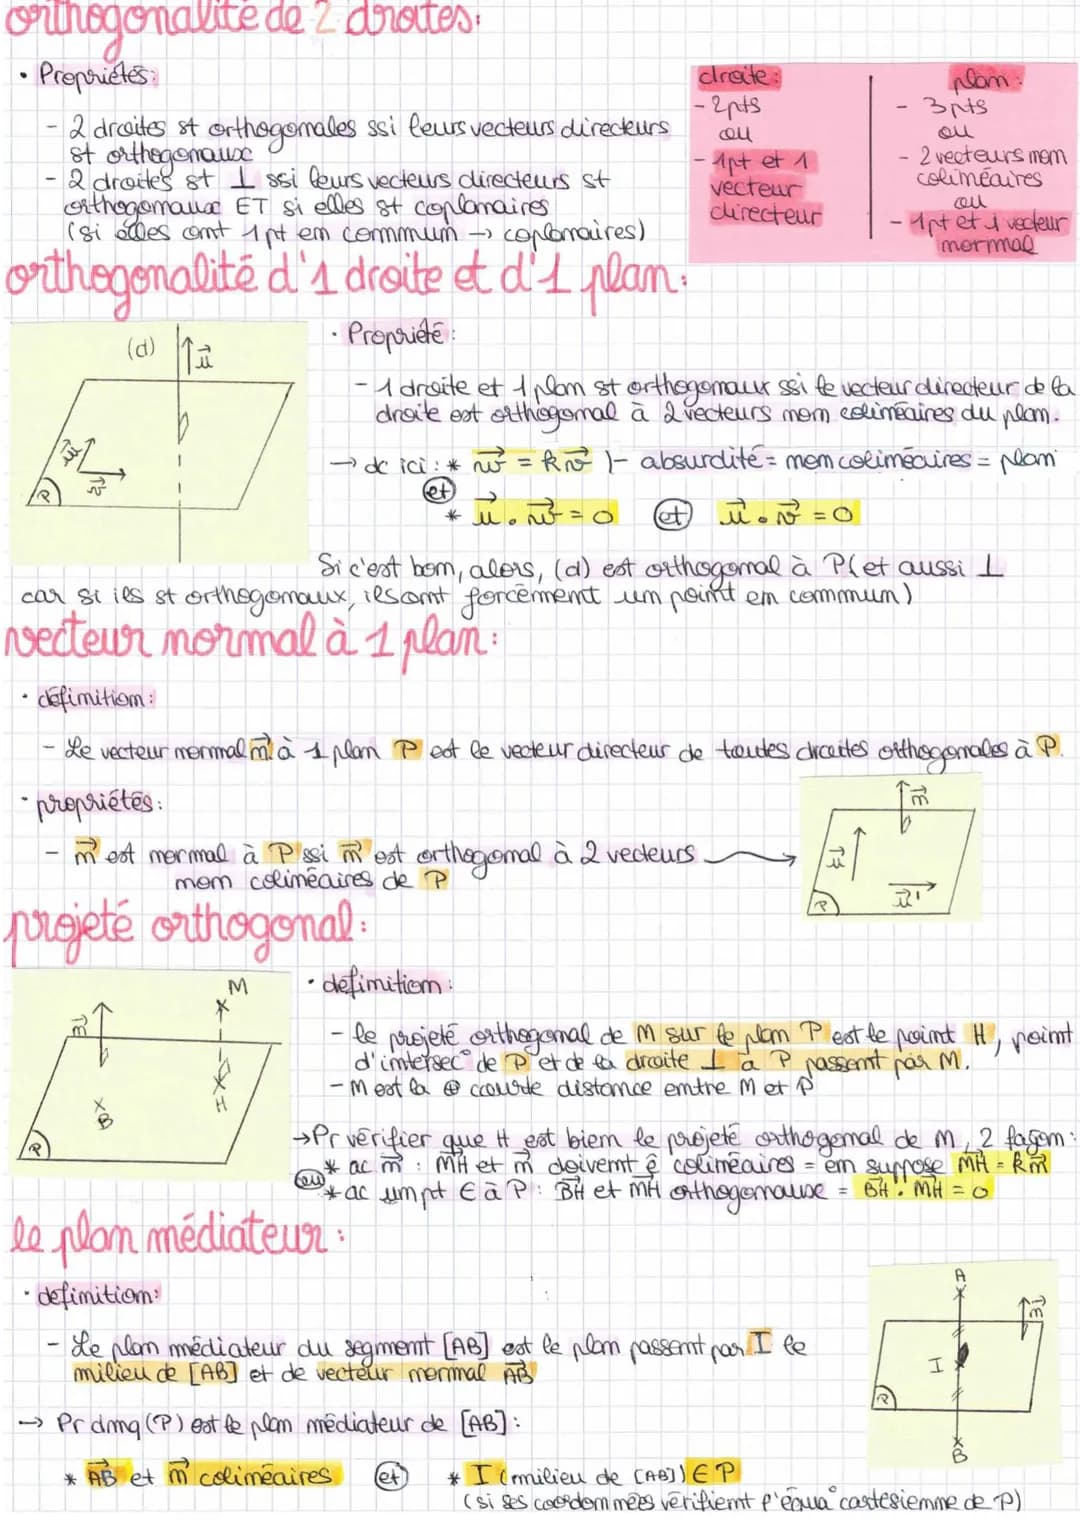 orthogonalité de 2 droites:
• Propriétés:
- 2 droites st orthogonales ssi leurs vecteurs directeurs
st orthogonaux
- 2 droites st ⊥ ssi leurs vecteurs directeurs st
orthogonaux ET si elles st coplanaires
(si elles ont 1pt en commun → coplanaires)
droite:
- 2pts
ou
- 1pt et 1
vecteur
directeur
plan:
- 3pts
ou
- 2 vecteurs non
colinéaires
ou
- 1pt et 1 vecteur
normal
orthogonalité d'1 droite et d'1 plan:
(d)
u⃗
w⃗
v⃗
P
• Propriété:
- 1 droite et 1 plan st orthogonaux ssi le vecteur directeur de la
droite est orthogonal à 2 vecteurs non colinéaires du plan.
→ dc ici: * w⃗ = kv⃗ )- absurdité = non colinéaires = plan
et
* u⃗ . w⃗ = 0 et u⃗ . v⃗ = 0
Si c'est bon, alors, (d) est orthogonal à P (et aussi ⊥
car si ils st orthogonaux, ils ont forcément un point en commun)
vecteur normal à 1 plan:
• définition:
- Le vecteur normal n⃗ à 1 plan P est le vecteur directeur de toutes droites orthogonales à P.
• propriétés:
- n⃗ est normal à P ssi n⃗ est orthogonal à 2 vecteurs
non colinéaires de P
n⃗
u⃗
u⃗'
P
projeté orthogonal:
n⃗
M
B
H
P
• definition:
- le projeté orthogonal de M sur le plan P est le point H, point
d'intersec° de P et de la droite ⊥ à P passant par M.
- M est la ⊕ courte distance entre M et P
→Pr vérifier que H est bien le projeté orthogonal de M, 2 façon:
* ac n⃗ : MH⃗ et n⃗ doivent ê colinéaires = en suppose MH⃗ = kn⃗
ou
* ac un pt ∈ à P: BH⃗ et MH⃗ orthogonaux = BH⃗ . MH⃗ = 0
le plan médiateur:
• definition:
- Le plan médiateur du segment [AB] est le plan passant par I le
milieu de [AB] et de vecteur normal AB⃗
A
n⃗
I
P
B
→ Pr dmq (P) est le plan médiateur de [AB]:
* AB⃗ et n⃗ colinéaires et * I (milieu de [AB]) ∈ P
(si ses coordonnées vérifient l'équa° cartésienne de P)